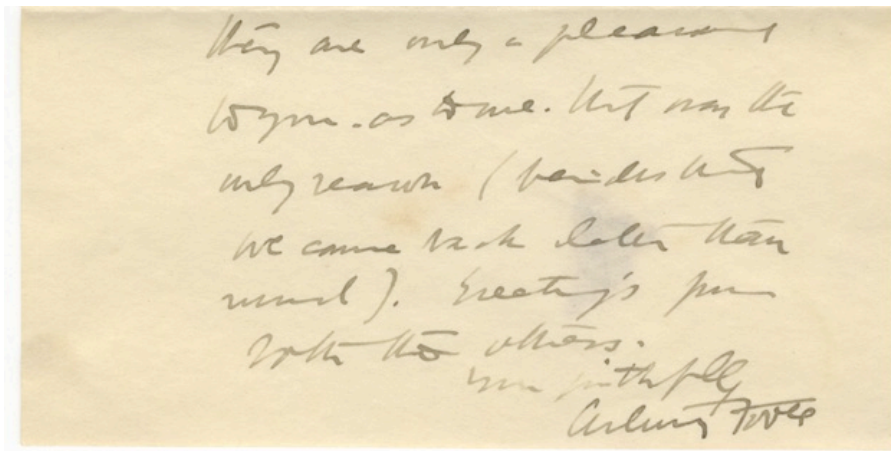 they are only a pleasure
to you - as to me. That was the
only reason (besides that
we came back later than
usual). Greetings from
both to others.
Yours faithfully
Arthur Foote